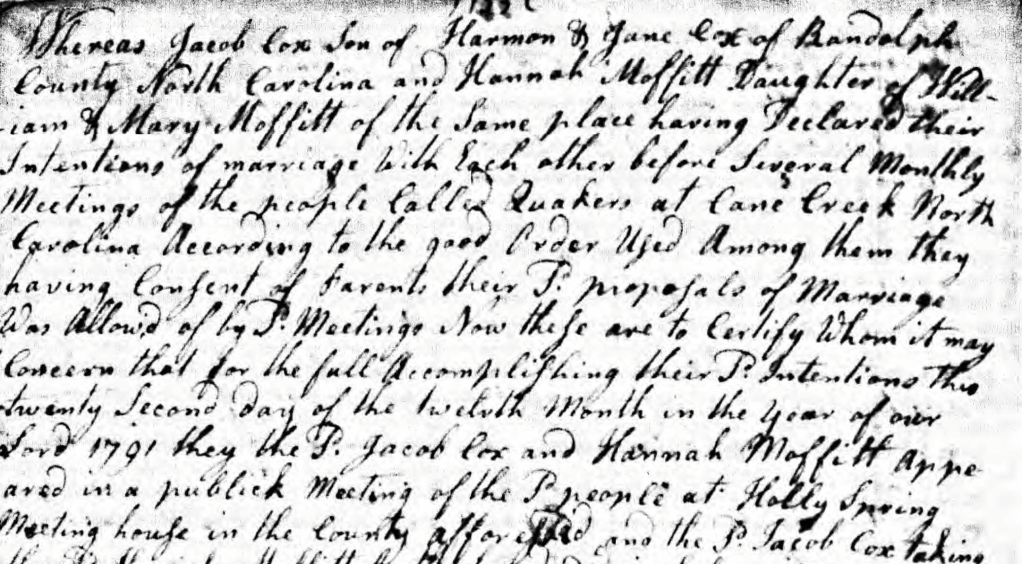 Whereas Jacob Cox Son of Harmon & Jane Cox of Randolph
County North Carolina and Hannah Moffitt Daughter of Will-
iam & Mary Moffitt of the Same place having Declared their
Intentions of marriage With Each other before Several Monthly
Meetings of the people Called Quakers at Cane Creek North
Carolina According to the good Order Used Among them they
having Consent of Parents their Sd. proposals of Marriage
Was Allowd of by Sd. Meetings Now these are to Certify Whom it may
Concern that for the full Accomplishing their Sd. Intentions this
twenty Second day of the twelvth Month in the year of our
Lord 1791 they the Sd. Jacob Cox and Hannah Moffitt Appe
ared in a publick Meeting of the Sd. people at Holly Spring
Meeting house in the County afforesaid and the Sd. Jacob Cox taking